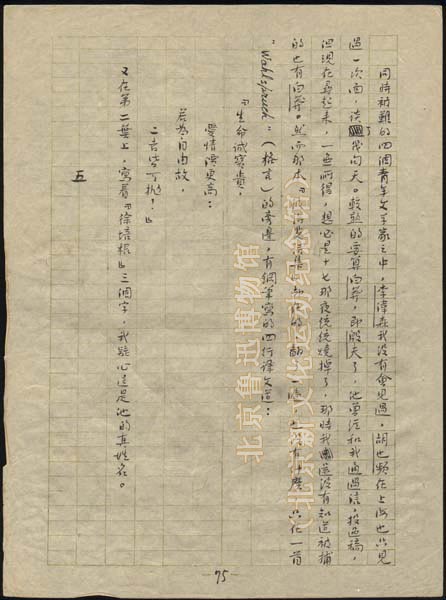 同時被難的四個青年文學家之中，李偉森我沒有會見過，胡也頻在上海也只見
過一次面，談了幾句天。較熟的要算白莽，即殷夫了，他曾經和我通過信，投過稿，
但現在尋起來，一無所得，想必是十七那夜統統燒掉了，那時我還沒有知道被捕
的也有白莽。然而那本『彼得斐詩集』却在的，翻了一遍，也沒有什麽，只在一首
“Wahlspruch”（格言）的旁邊，有鋼筆寫的四行譯文道：
『生命誠寶貴，
愛情價更高；
若為自由故，
二者皆可拋！』
又在第二葉上，寫着『徐培根』三個字，我疑心這是他的真姓名。
五
75
北京鲁迅博物馆
（北京新文化运动纪念馆）